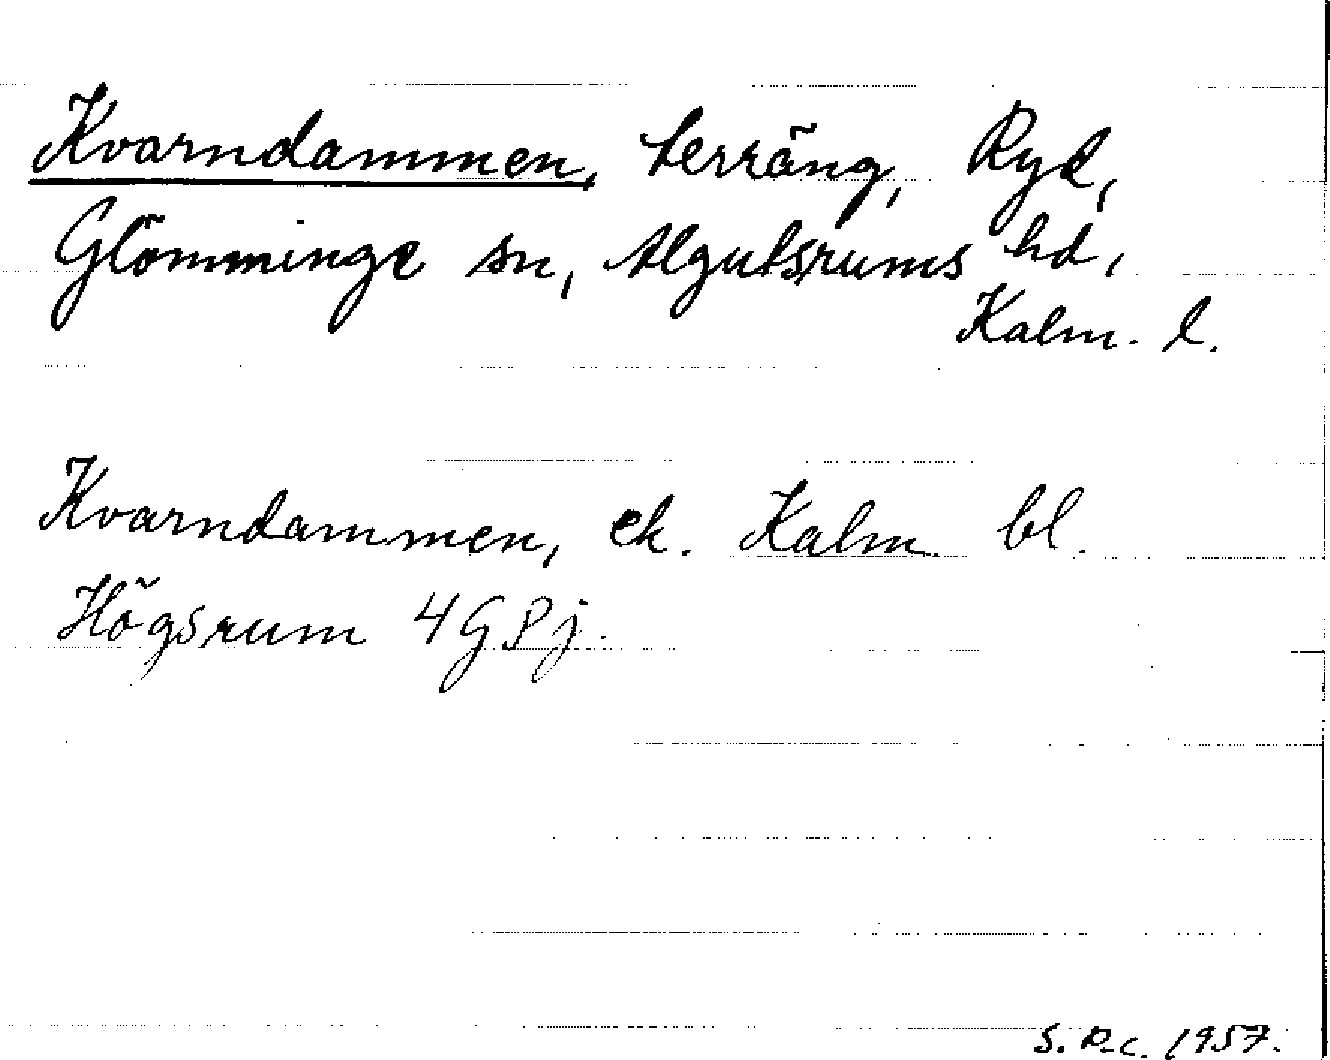 Kvarndammen, terräng, Ryd,
Glömminge sn, Algutsrums hd,
Kalm. l.
Kvarndammen, ek. Kalm. bl.
Högsrum 4G8j.
S. R-c. 1957.